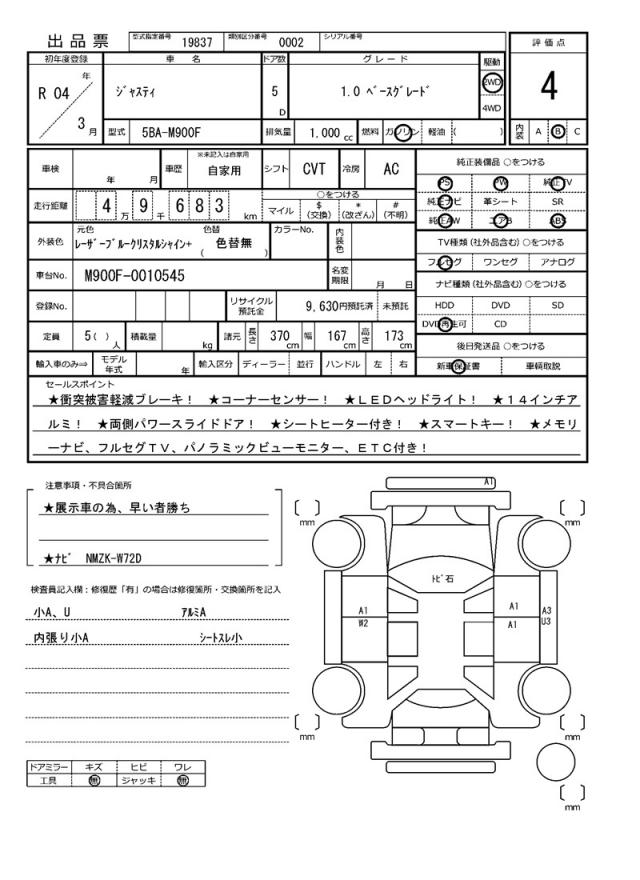 出品票
型式指定番号 19837 類別区分番号 0002 シリアル番号
評価点
4
内装 A B C
初年度登録 車名 ドア数 グレード 駆動
R 04 年 3 月
ジャスティ 5 D 1.0 ベースグレード 2WD 4WD
型式 5BA-M900F 排気量 1,000 cc 燃料 ガソリン 軽油 ( )
車検 年 月 車歴 ※未記入は自家用 自家用 シフト CVT 冷房 AC
走行距離 4 万 9 千 6 8 3 km ○をつける
マイル $ (交換) * (改ざん) # (不明)
外装色 元色 色替 カラーNo. 内装色
レーザーブルークリスタルシャイン+ ( 色替無 )
車台No. M900F-0010545 名変期限 月 日
登録No. リサイクル預託金 9,630円預託済 未預託
定員 5( ) 人 積載量 kg 諸元 長さ 370 cm 幅 167 cm 高さ 173 cm
輸入車のみ⇒ モデル年式 年 輸入区分 ディーラー 並行 ハンドル 左 右
純正装備品 ○をつける
PS PW 純正TV
純正ナビ 革シート SR
純正AW エアB ABS
TV種類(社外品含む) ○をつける
フルセグ ワンセグ アナログ
ナビ種類(社外品含む) ○をつける
HDD DVD SD
DVD再生可 CD
後日発送品 ○をつける
新車保証書 車輌取説
セールスポイント
★衝突被害軽減ブレーキ! ★コーナーセンサー! ★LEDヘッドライト! ★14インチア
ルミ! ★両側パワースライドドア! ★シートヒーター付き! ★スマートキー! ★メモリ
ーナビ、フルセグTV、パノラミックビューモニター、ETC付き!
注意事項・不具合箇所
★展示車の為、早い者勝ち
★ナビ NMZK-W72D
検査員記入欄:修復歴「有」の場合は修復箇所・交換箇所を記入
小A、U アルミA
内張り小A シートスレ小
ドアミラー キズ ヒビ ワレ
工具 無 ジャッキ 無
A1
mm
mm
トビ石
A1
W2
A1
A1
A3
U3
mm
mm
mm